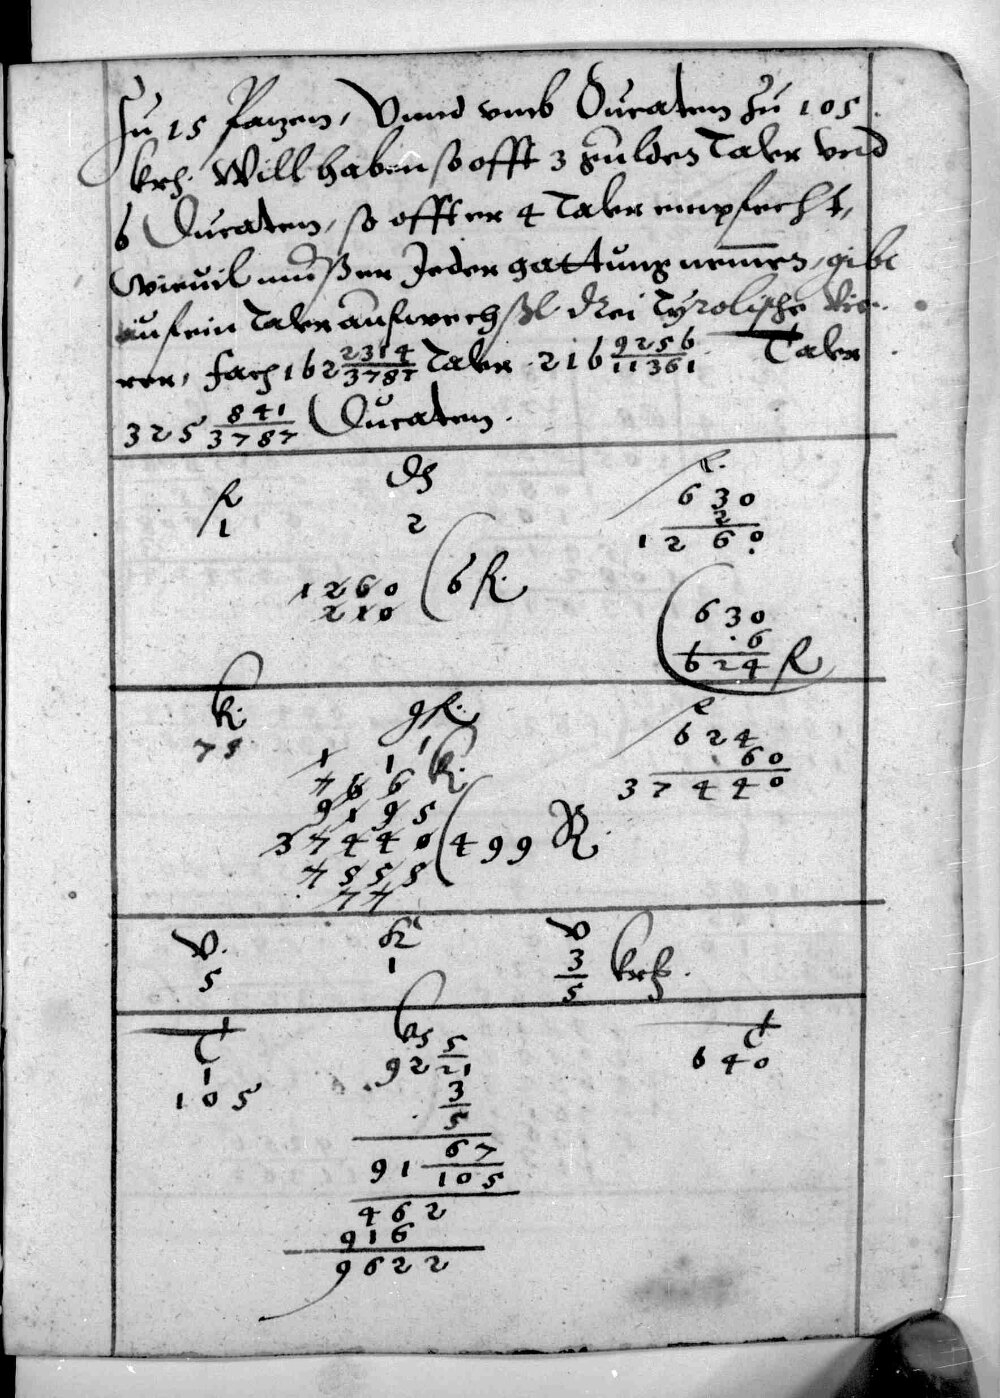 Zu 15 Pazen, Vnnd vmb Ducaten Zu 105
krh. Will haben so offt 3 gulden Taler vnd
6 Ducaten, so offt er 4 Taler empfecht,
wieuil muß er Jeder gattung nemen, gibt
auf ein Taler aufwechßl drei Tyrolische Vie-
rer, fach 162 2314/3787 Taler 216 9256/11361 Taler
325 841/3787 Ducaten.
R
1
2
630
2
1260
1260
210
6 R
630
6
624 R
k.
75
9 R.
1 1 1
4 6 6 k.
9 1 9 5
37440
499 R
7 5 5 5
7 7
R
624
60
37440
V.
5
k
1
V
3/5 krh.
1
105
92 5/21
3/5
91 67/105
462
916
9622
640